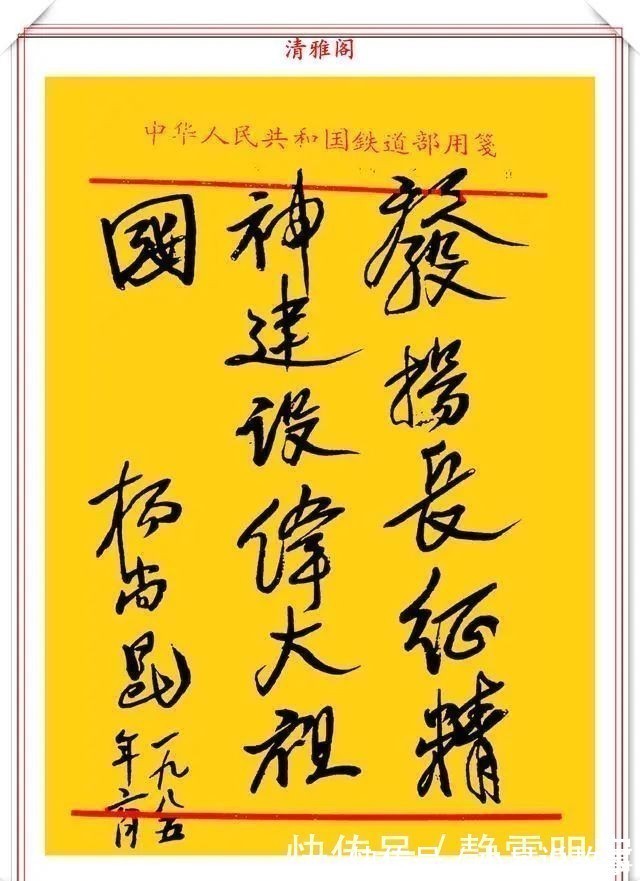 清雅阁
中华人民共和国鉄道部用箋
發揚長征精
神建设偉大祖
國
杨尚昆
一九八五
年六月
快传号/静霊明